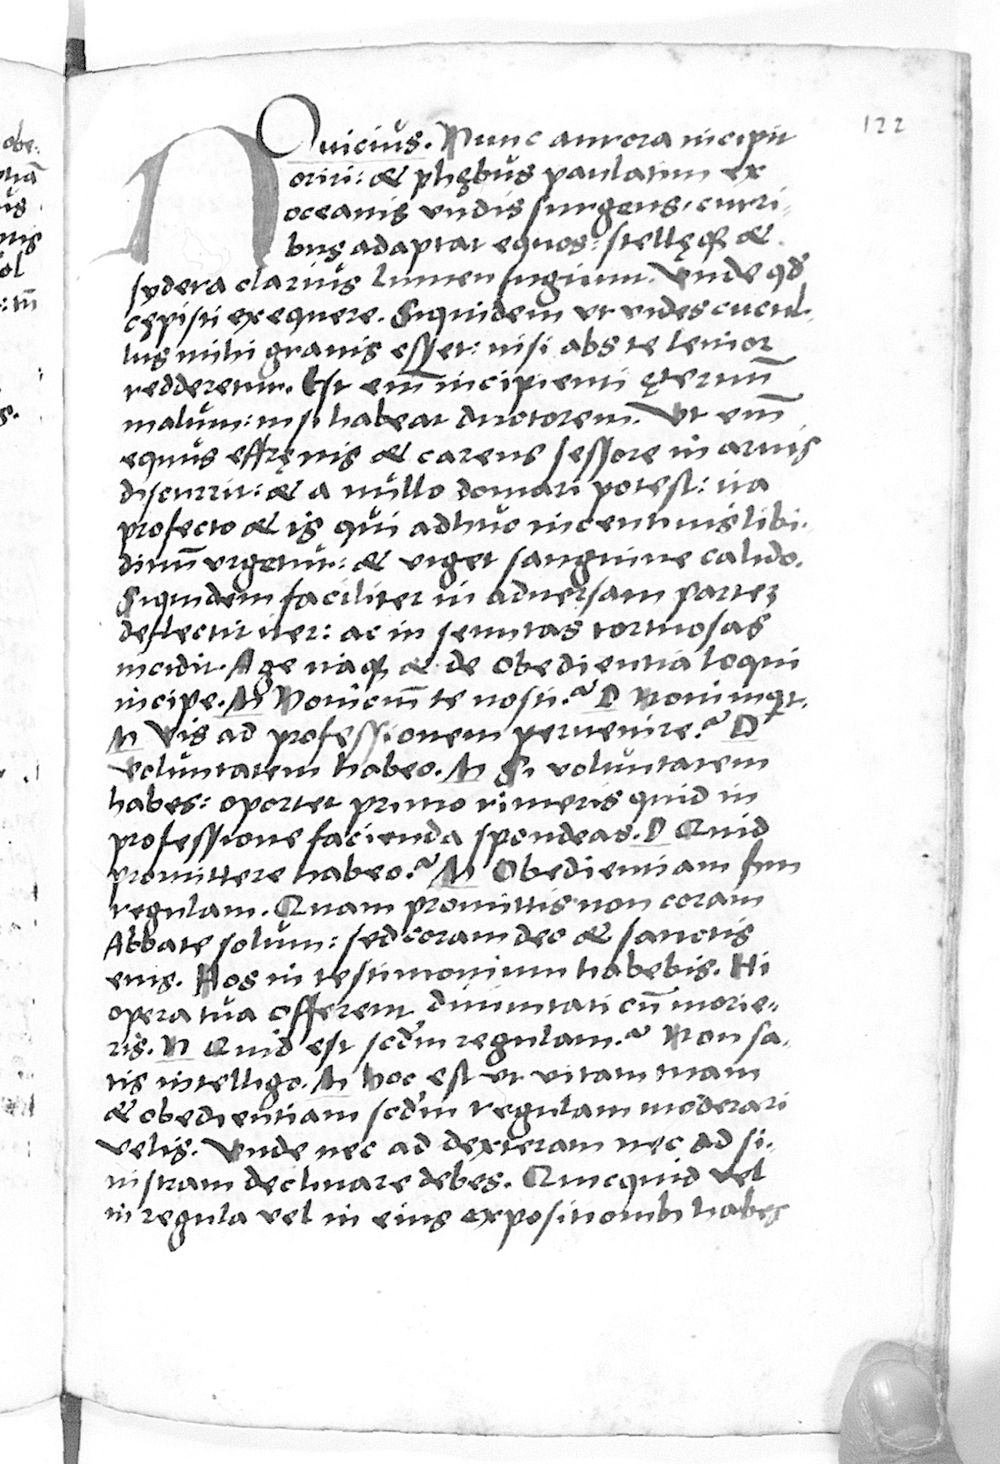 122
NOuicius. Nunc aurora incipit
oriri: & phębus paulatim ex
oceanis undis surgens. curri-
bus adaptat equos: stellęq3 &
sydera clarius lumen fugiunt. Unde qđ
cępisti exequere. Siquidem ut uides cucul-
lus mihi grauis esset: nisi abs te lenior
redderetur. Est em̄ incipienti ęternū
malum: ni si habeat ductorem. Ut em̄
equus effrenis & carens sessore in aruis
discurrit: & a nullo domari potest: ita
profecto & is qui adhuc incentiuis libi-
dinū urgetur: & uiget sanguine calido.
Siquidem faciliter in aduersam partez
deflectit iter: ac in semitas tortuosas
incidit. Age itaq3 & de obedientia loqui
incipe. M Nouicium te nosti? D Noui inqt.
M Vis ad professionem peruenire? D
Voluntatem habeo. M Si uoluntatem
habes: oportet primo rimeris quid in
professione facienda spondeas. D Quid
promittere habeo? M Obedientiam sm
regulam. Quam promittis non coram
Abbate solum: sed coram deo & sanctis
eius. Hos in testimonium habebis. Hi
opera tua offerent diuinitati cū morie-
ris. N Quid est scdm regulam? Non sa-
tis intelligo. M Hoc est ut uitam tuam
& obedientiam scdm regulam moderari
uelis. Unde nec ad dexteram nec ad si-
nistram declinare debes. Quicquid uel
in regula uel in eius expositionib3 habes